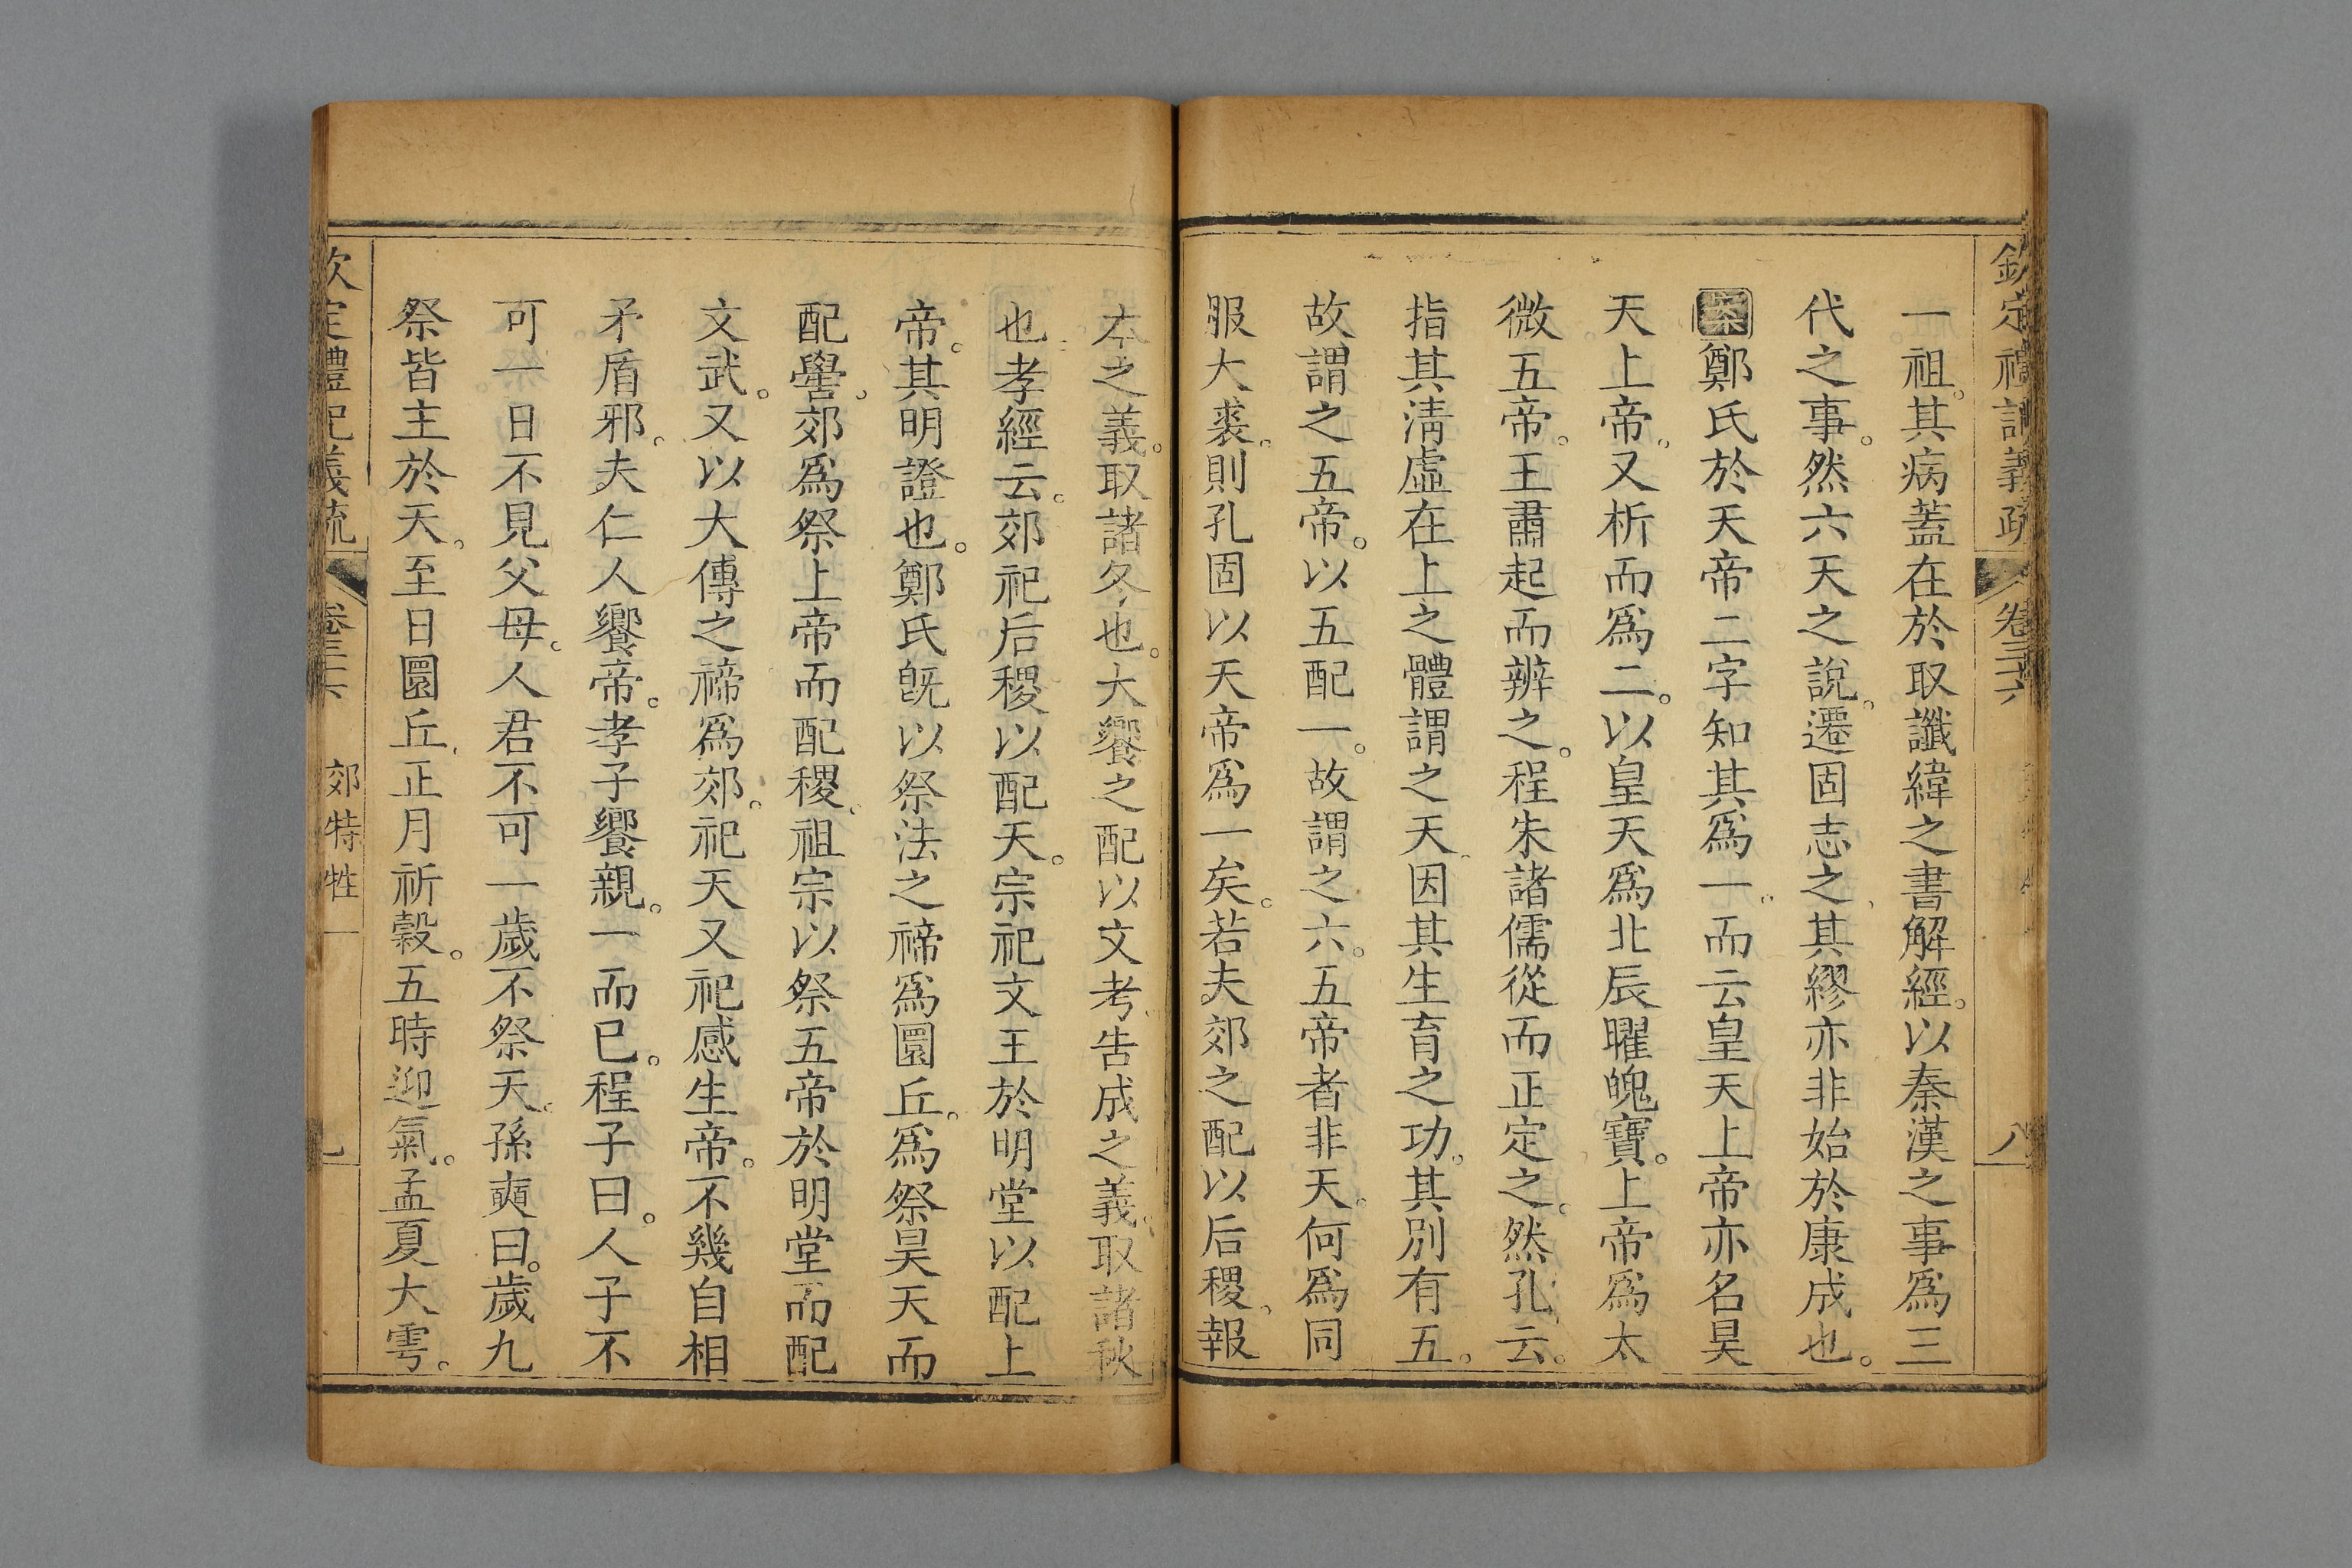 欽定禮記義疏 卷三十六 八
一祖。其病蓋在於取讖緯之書解經。以秦漢之事爲三
代之事。然六天之說。遷固志之。其繆亦非始於康成也。
案鄭氏於天帝二字知其爲一。而云皇天上帝亦名昊
天上帝。又析而爲二。以皇天爲北辰曜魄寶。上帝爲太
微五帝。王肅起而辨之。程朱諸儒從而正定之。然孔云。
指其淸虛在上之體謂之天。因其生育之功。其別有五。
故謂之五帝。以五配一。故謂之六。五帝者非天。何爲同
服大裘。則孔固以天帝爲一矣。若夫郊之配以后稷。報
本之義。取諸冬也。大饗之配以文考。告成之義。取諸秋
也。孝經云。郊祀后稷以配天。宗祀文王於明堂以配上
帝。其明證也。鄭氏旣以祭法之禘爲圜丘。爲祭昊天而
配嚳。郊爲祭上帝而配稷。祖宗以祭五帝於明堂而配
文武。又以大傳之禘爲郊。祀天又祀感生帝。不幾自相
矛盾邪。夫仁人饗帝。孝子饗親。一而已。程子曰。人子不
可一日不見父母。人君不可一歲不祭天。孫奭曰。歲九
祭皆主於天。至日圜丘。正月祈穀。五時迎氣。孟夏大雩。
欽定禮記義疏 卷三十六 郊特牲一